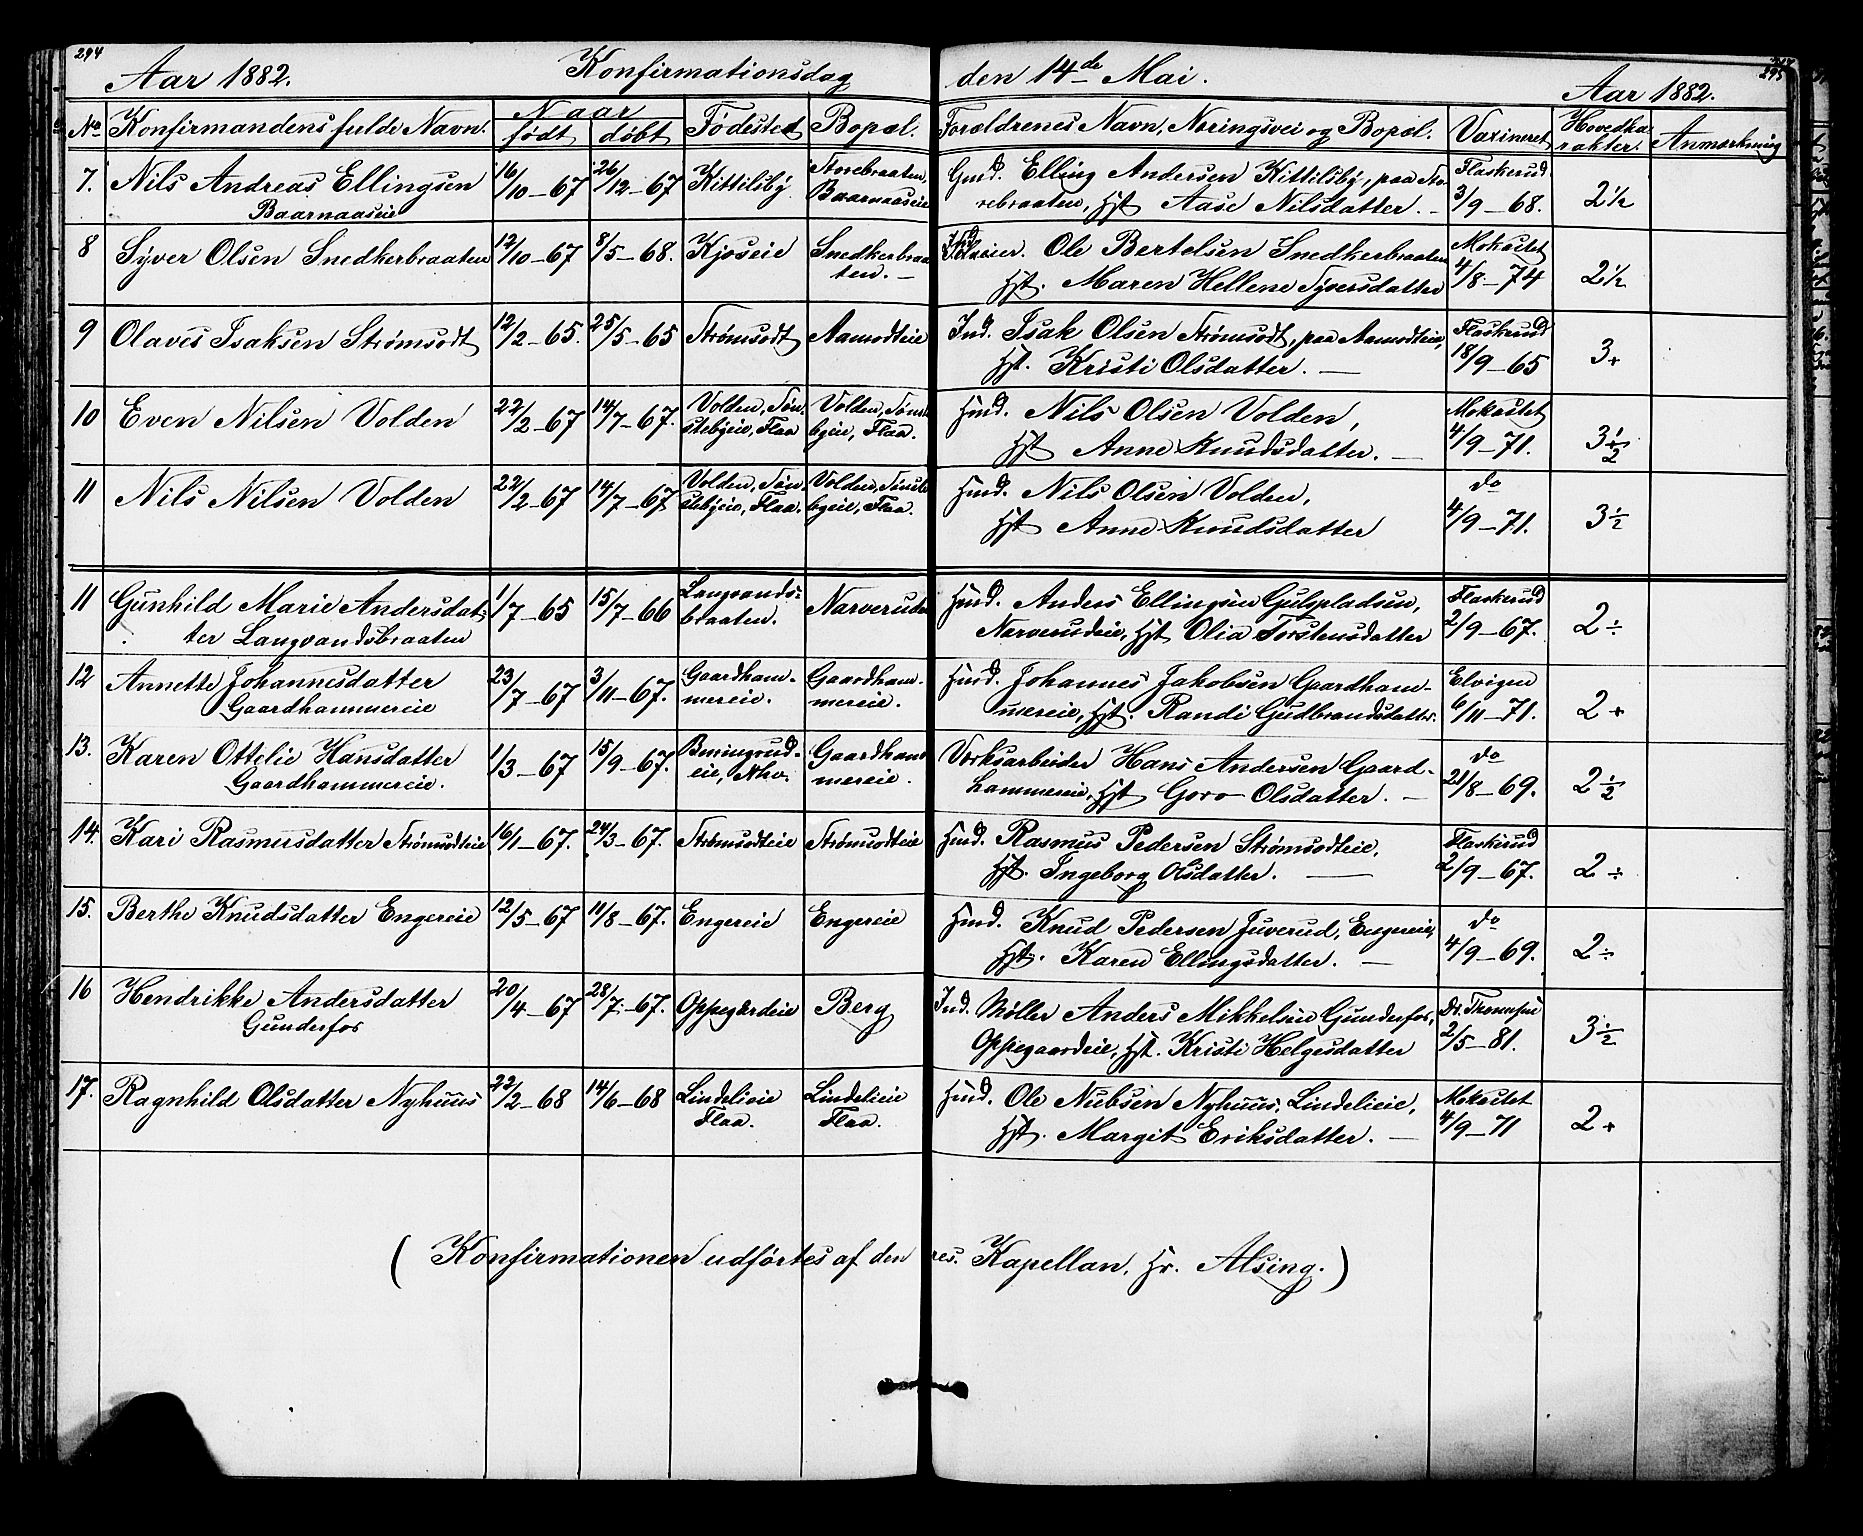 294
Aar 1882. Konfirmationsdag den 14de Mai. Aar 1882.
295
No Konfirmandens fulde Navn. Naar født døbt Fødested Bopæl. Forældrenes Navn, Næringsvei og Bopæl. Vaxineret Hovedkarakter. Anmærkning
7. Nils Andreas Ellingsen 16/10–67 26/12–67 Kittilsby Storebraaten, Gmd. Elling Andersen Kittilsby, paa Sto- Flaskerud
Baarnaaseie Baarnaaseie rebraaten, Hst Aase Nilsdatter. – 3/9–68. 2½
8 Syver Olsen Snedkerbraaten 12/10–67 8/5–68. Kjoseie Snedkerbraa- Ole Bertelsen Snedkerbraaten Mokastet
ten. – Hst. Maren Hellene Syversdatter 4/8–74 2½
9 Olaves Isaksen Strømsodt 12/2–65. 25/5–65 Strømsodt Aamodteie Ind. Isak Olsen Strømsodt, paa Aamodteie, Flaskerud
Hst. Kristi Olsdatter. — 18/9–65 3+
10 Even Nilsen Volden 22/2–67 14/7–67. Volden, Søn- Volden, Sønste- Hmd. Nils Olsen Volden, Mokastet
stebyeie, Flaa byeie, Flaa. Hst Anne Knudsdatter. – 4/9–71. 3½
11 Nils Nilsen Volden 22/2–67 14/7–67 Volden, Søn- Volden, Sønste- Hmd. Nils Olsen Volden, do
stebyeie, Flaa. byeie, Flaa. Hst Anne Knudsdatter 4/9–71. 3½
11 Gunhild Marie Andersdat- 1/7–65 15/7–66 Langvands- Narverudeie Hmd. Anders Ellingsen Gulspladsen, Flaskerud
ter Langvandsbraaten braaten. Narverudeie, Hst Olia Torstensdatter 2/9–67. 2÷
12 Annette Johannesdatter 23/7–67 3/11–67. Gaardham- Gaardham- Hmd. Johannes Jakobsen Gaardham- Elvigen
Gaardhammereie mereie. mereie. mereie, Hst. Randi Gudbrandsdatter. 6/11–71. 2+
13. Karen Ottelie Hansdatter 1/3–67 15/9–67. Gaardham- Værksarbeider Hans Andersen Gaard- do
Gaardhammereie. eie, mereie. hammereie, Hst Goro Olsdatter. – 21/8–69. 2½
14. Kari Rasmusdatter Strømsodteie 16/1–67. 24/3–67. Strømsodteie Strømsodteie Hmd. Rasmus Pedersen Strømsodteie, Flaskerud
Hst. Ingeborg Olsdatter. — 2/9–67. 2÷
15. Berthe Knudsdatter Engereie 12/5–67 11/8–67. Engereie Engereie Hmd. Knud Pedersen Juverud, Engereie, do
Hst. Karen Ellingsdatter. – 4/9–69. 2÷
16 Hendrikke Andersdatter 20/4–67 28/7–67. Oppegardeie Berg Ind. Møller Anders Mikkelsen Gunderfos, Dr. Thomesen
Gunderfos Oppegaardeie, Hst. Kristi Helgesdatter 2/5–81. 3½
17. Ragnhild Olsdatter Nyhuus 22/2–68 14/6–68 Lindelieie Lindelieie Hmd. Ole Nubsen Nyhuus, Lindelieie, Mokastet
Flaa. Flaa. Hst. Margit Eriksdatter. – 4/9–71 2+
( Konfirmationen udførtes af den res. Kapellan, Hr. Alsing. )